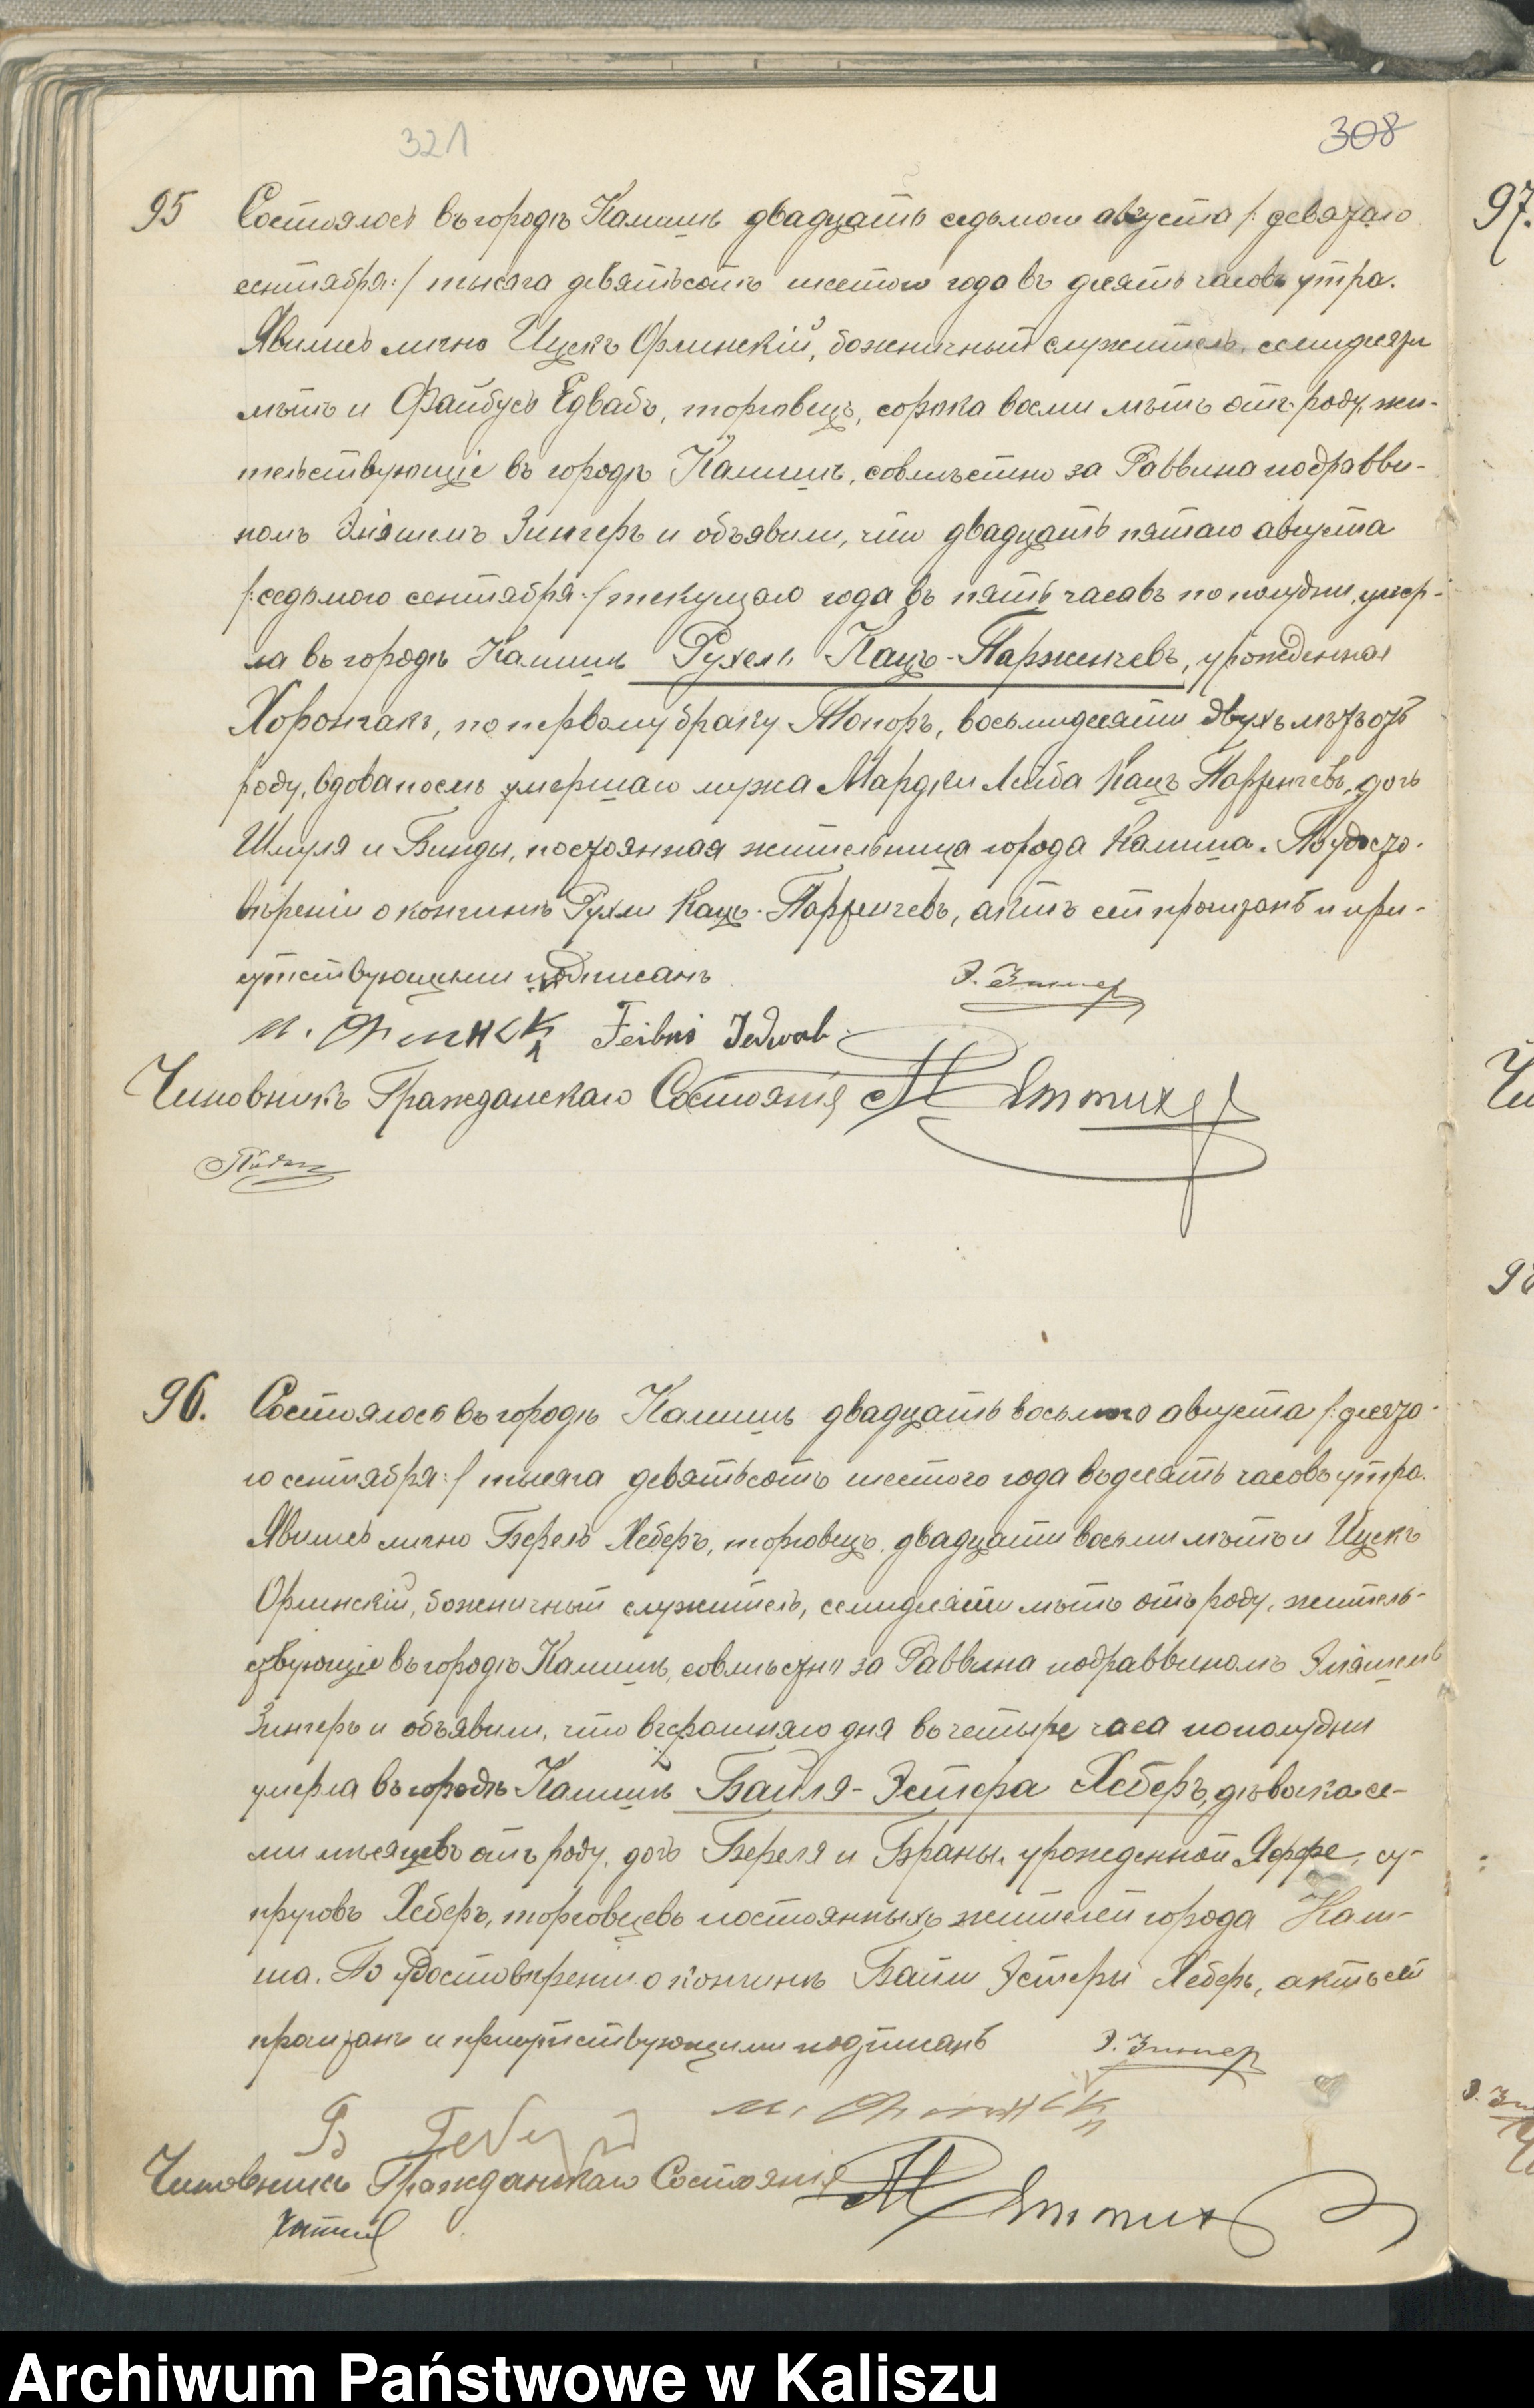 321
308
95 Состоялось въ городѣ Калишѣ двадцать седьмого августа /:девятаго
сентября:/ тысяча девятьсотъ шестого года въ десять часовъ утра.
Явились лично Ицекъ Орлинскій, божничный служитель, семидесяти
лѣтъ и Файбусь Едвабъ, торговецъ, сорока восми лѣтъ отъ роду, жи-
тельствующіе въ городѣ Калишѣ, совмѣстно за Раввина подравви-
номъ Эліяшемъ Зингеръ и объявили, что двадцать пятаго августа
/:седьмого сентября:/ текущаго года въ пять часовъ пополудни, умер-
ла въ городѣ Калишѣ Рухель Кацъ-Парженчевъ, урожденная
Хорончакъ, по первому браку Топоръ, восьмидесяти двухъ лѣтъ отъ
роду, вдова после умершаго мужа Мардки Лейба Кацъ Парженчевъ, дочь
Шмуля и Бинды, постоянная жительница города Калиша. По удосто-
вѣреніи о кончинѣ Рухли Кацъ-Парженчевъ, актъ сей прочитанъ и при-
сутствующими подписанъ Э. Зингер
И. Орлинскі Feibus Jedwab
Чиновникъ Гражданскаго Состоянія
96. Состоялось въ городѣ Калишѣ двадцать восьмого августа /:десята-
го сентября:/ тысяча девятьсотъ шестого года въ десять часовъ утра.
Явились лично Берель Хеберъ, торговецъ, двадцати восьми лѣтъ и Ицекъ
Орлинскій, божничный служитель, семидесяти лѣтъ отъ роду, житель-
ствующіе въ городѣ Калишѣ, совмѣстно за Раввина подраввиномъ Эліяшемъ
Зингеръ и объявили, что вчерашняго дня въ четыре часа пополудни
умерла въ городѣ Калишѣ Байля-Эстера Хеберъ, дѣвочка се-
ми мѣсяцевъ отъ роду, дочь Береля и Браны, урожденной Яффе, су-
пруговъ Хеберъ, торговцевъ постоянныхъ жителей города Кали-
ша. По удостовѣреніи о кончинѣ Байли Эстеры Хеберъ, актъ сей
прочитанъ и присутствующими подписанъ Э. Зингер
И. Орлинскі
Чиновникъ Гражданскаго Состоянія
97.
Archiwum Państwowe w Kaliszu